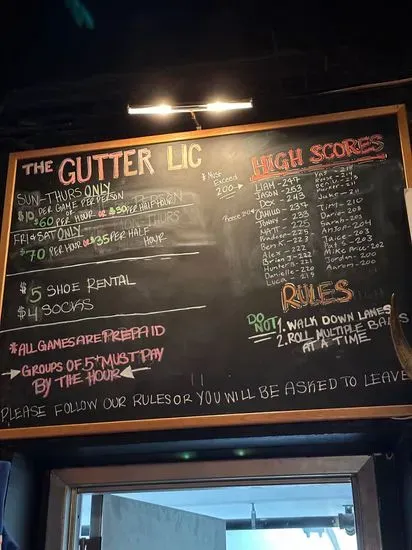 THE GUTTER LIC
SUN-THURS ONLY
$10 PER GAME PER PERSON
OR
$60 PER HOUR OR $30 PER HALF HOUR
FRI & SAT ONLY
$70 PER HOUR OR $35 PER HALF
HOUR
$5 SHOE RENTAL
$4 SOCKS
*ALL GAMES ARE PREPAID
GROUPS OF 5+ MUST PAY
BY THE HOUR
* Must
Exceed
200
HIGH SCORES
LIAM-247
JASON-253
DEX-243
-237
-233
MATT-225
-225
BEN K-223
Alex-222
Brian J-222
Hunter-221
Danielle-220
Luca-219
-211
-211
-211
Juke-211
-210
-210
-205
Anjan-204
Juice-203
Pat S-203
Mike Price-202
Jordan-200
Aaron-200
RULES
DO NOT
1. WALK DOWN LANES
2. ROLL MULTIPLE BALLS
AT A TIME
PLEASE FOLLOW OUR RULES OR YOU WILL BE ASKED TO LEAVE